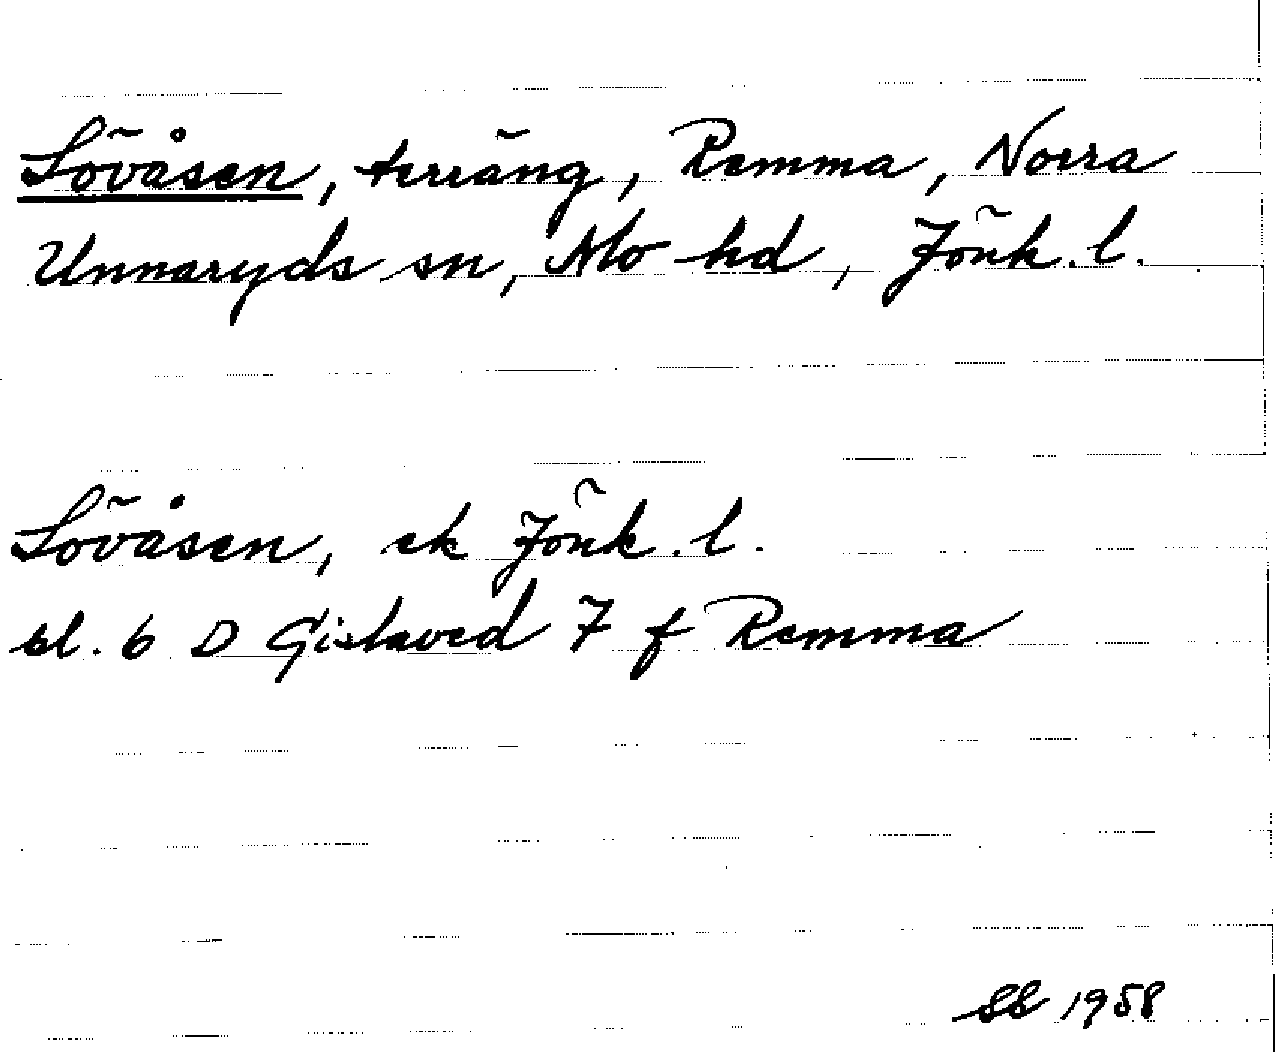 Lövåsen, terräng, Remma, Norra
Unnaryds sn, Mo hd, Jönk. l.
Lövåsen, ek Jönk. l.
bl. 6 D Gislaved 7 f Remma
1958